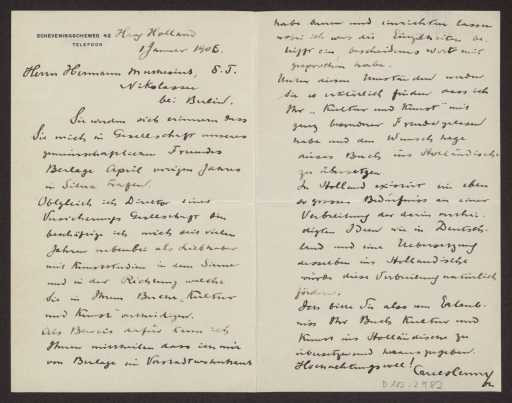 SCHEVENINGSCHEWEG 42
TELEFOON
Haag Holland
1 Januar 1906.
Herrn Hermann Muthesius, S. T.
Nikolassee
bei Berlin.
Sie werden sich erinnern dass
Sie mich in Gesellschaft unseres
gemeinschaftlichen Freundes
Berlage April vorigen Jahres
in trafen.
Obgleich ich Director einer
Versicherungs Gesellschaft bin
beschäftige ich mich seit vielen
Jahren nebenbei als Liebhaber
mit Kunststudien in dem Sinne
und in der Richtung welche
Sie in Ihrem Buche „Kultur
und Kunst" verteidigen.
Als Beweis dafür kann ich
Ihnen mitteilen dass ich mir
von Berlage ein
habe bauen und einrichten lassen
wobei ich was die Einzelheiten be-
trifft ein bescheidenes Wort mit
gesprochen habe.
Unter diesen Umständen werden
Sie es erklärlich finden dass ich
Ihr „Kultur und Kunst" mit
ganz besonderer Freude gelesen
habe und den Wunsch hege
dieses Buch ins Holländische
zu übersetzen.
In Holland existirt ein eben
so grosses Bedürfniss an einer
Verbreitung der darin vertei-
digten Ideen wie in Deutsch-
land und eine Uebersetzung
desselben ins Holländische
würde diese Verbreitung natürlich
fördern.
Ich bitte Sie also um Erlaub-
niss Ihr Buch Kultur und
Kunst ins Holländische zu
übersetzen und herauszugeben.
Hochachtungsvoll!
D 102-2982